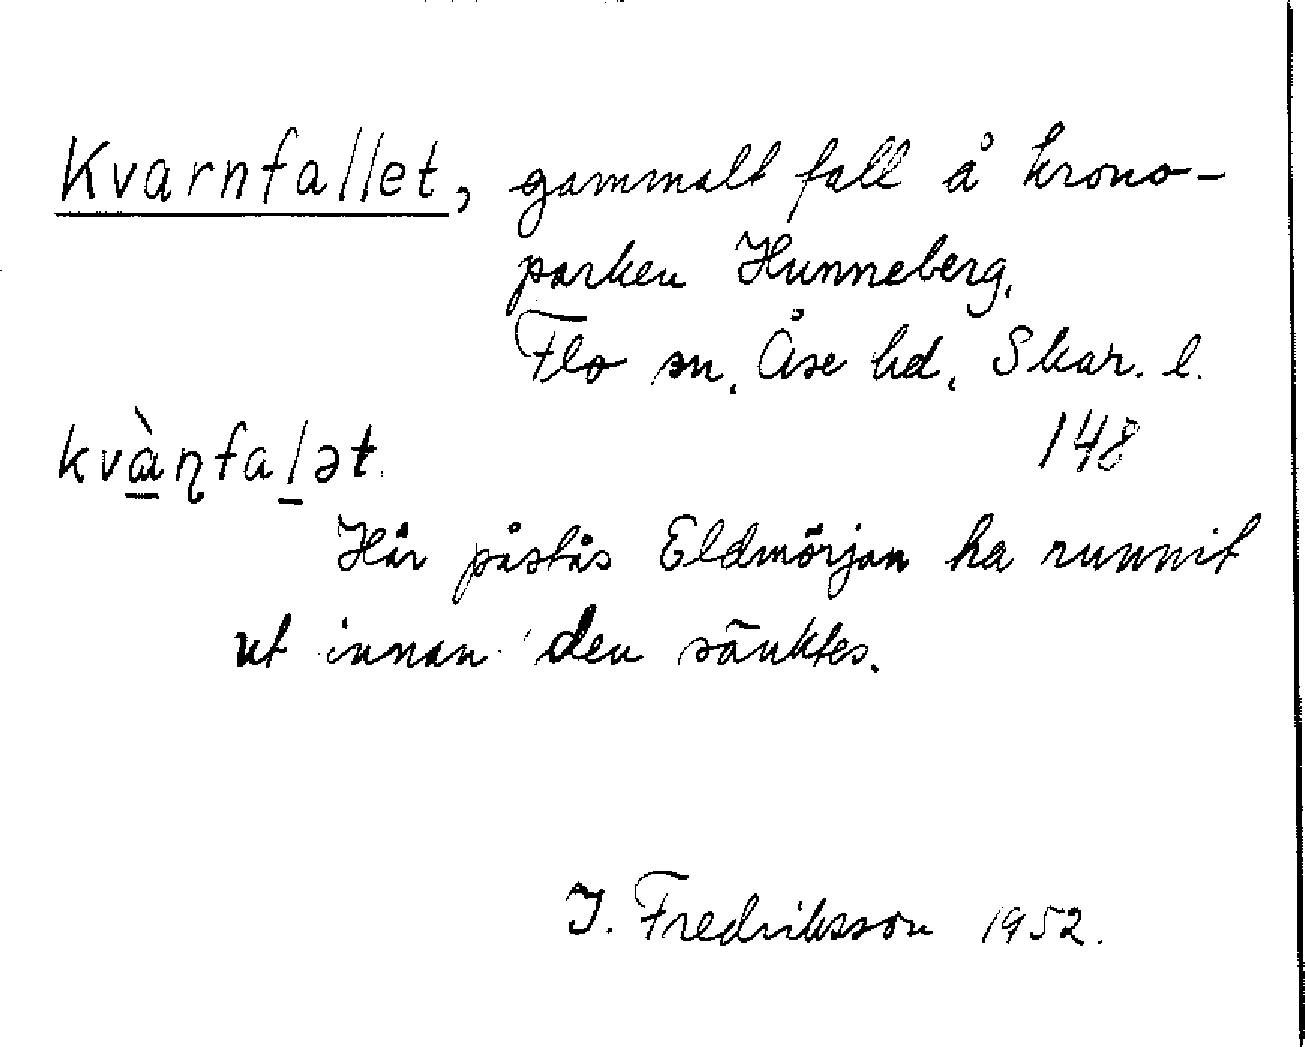 Kvarnfallet, gammalt fall å krono-
parken Hunneberg,
Flo sn, Åse hd, Skar. l.
148
kvàɳfalət.
Här påstås Eldmörjan ha runnit
ut innan den sänktes.
J. Fredriksson 1952.